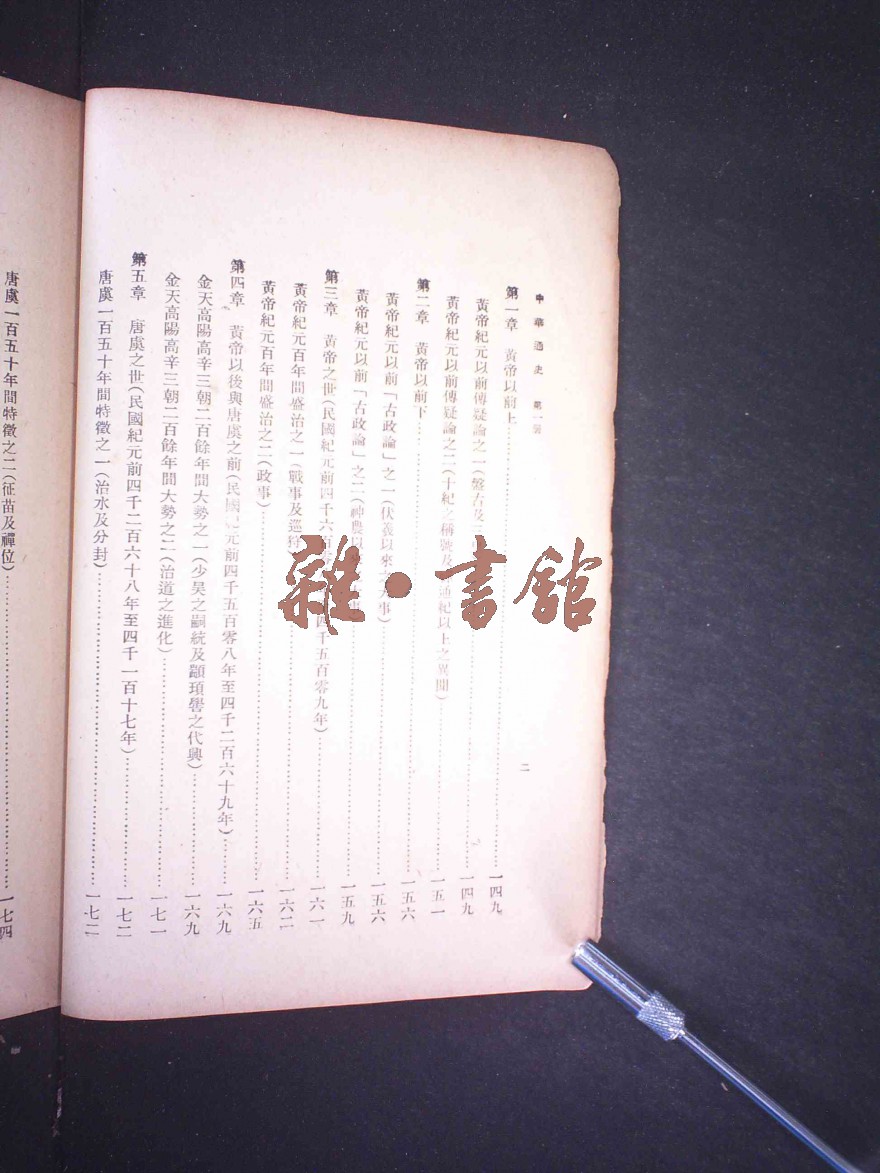 中華通史 第一冊
二
第一章 黃帝以前上……一四九
黃帝紀元以前傳疑論之一(盤古及……一四九
黃帝紀元以前傳疑論之二(十紀之稱號及 通紀以上之異聞)……一五一
第二章 黃帝以前下……一五六
黃帝紀元以前「古政論」之一(伏羲以來 大事)……一五六
黃帝紀元以前「古政論」之二(神農以 事……一五九
第三章 黃帝之世(民國紀元前四千六百 四千五百零九年)……一六一
黃帝紀元百年間盛治之一(戰事及巡狩……一六二
黃帝紀元百年間盛治之二(政事)……一六五
第四章 黃帝以後與唐虞之前(民國紀元前四千五百零八年至四千二百六十九年)……一六九
金天高陽高辛三朝二百餘年間大勢之一(少昊之嗣統及顓頊嚳之代興)……一六九
金天高陽高辛三朝二百餘年間大勢之二(治道之進化)……一七一
第五章 唐虞之世(民國紀元前四千二百六十八年至四千一百十七年)……一七二
唐虞一百五十年間特徵之一(治水及分封)……一七二
唐虞一百五十年間特徵之二(征苗及禪位)……一七四
雜·書館